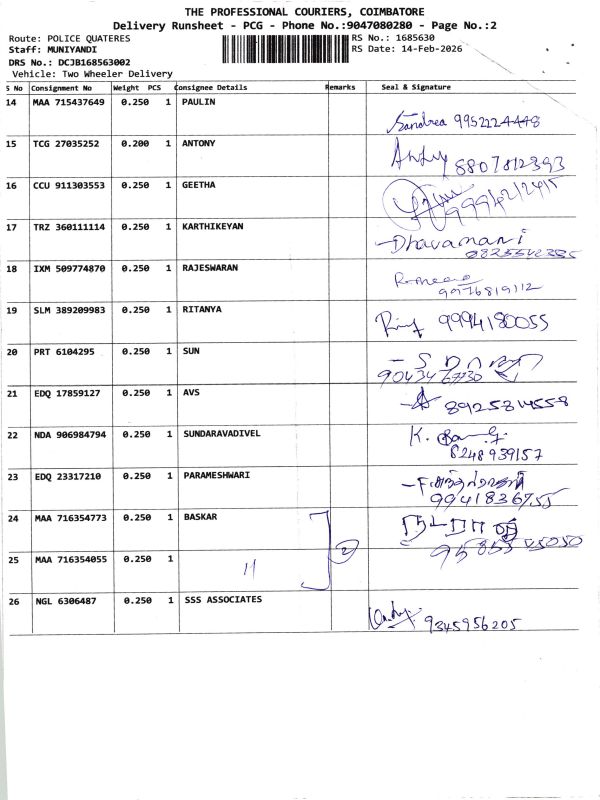 THE PROFESSIONAL COURIERS, COIMBATORE
Delivery Runsheet - PCG - Phone No.:9047080280 - Page No.:2
Route: POLICE QUATERES RS No.: 1685630
Staff: MUNIYANDI RS Date: 14-Feb-2026
DRS No.: DCJB168563002
Vehicle: Two Wheeler Delivery
S No Consignment No Weight PCS Consignee Details Remarks Seal & Signature
14 MAA 715437649 0.250 1 PAULIN
Sandrea 9952224448
15 TCG 27035252 0.200 1 ANTONY
Antly 8807812393
16 CCU 911303553 0.250 1 GEETHA
17 TRZ 360111114 0.250 1 KARTHIKEYAN
Dhavamani
18 IXM 509774870 0.250 1 RAJESWARAN
9976819112
19 SLM 389209983 0.250 1 RITANYA
9994180055
20 PRT 6104295 0.250 1 SUN
21 EDQ 17859127 0.250 1 AVS
8925814558
22 NDA 906984794 0.250 1 SUNDARAVADIVEL
K.
6248939157
23 EDQ 23317210 0.250 1 PARAMESHWARI
9941836755
24 MAA 716354773 0.250 1 BASKAR
2
25 MAA 716354055 0.250 1 11
26 NGL 6306487 0.250 1 SSS ASSOCIATES
9345956205